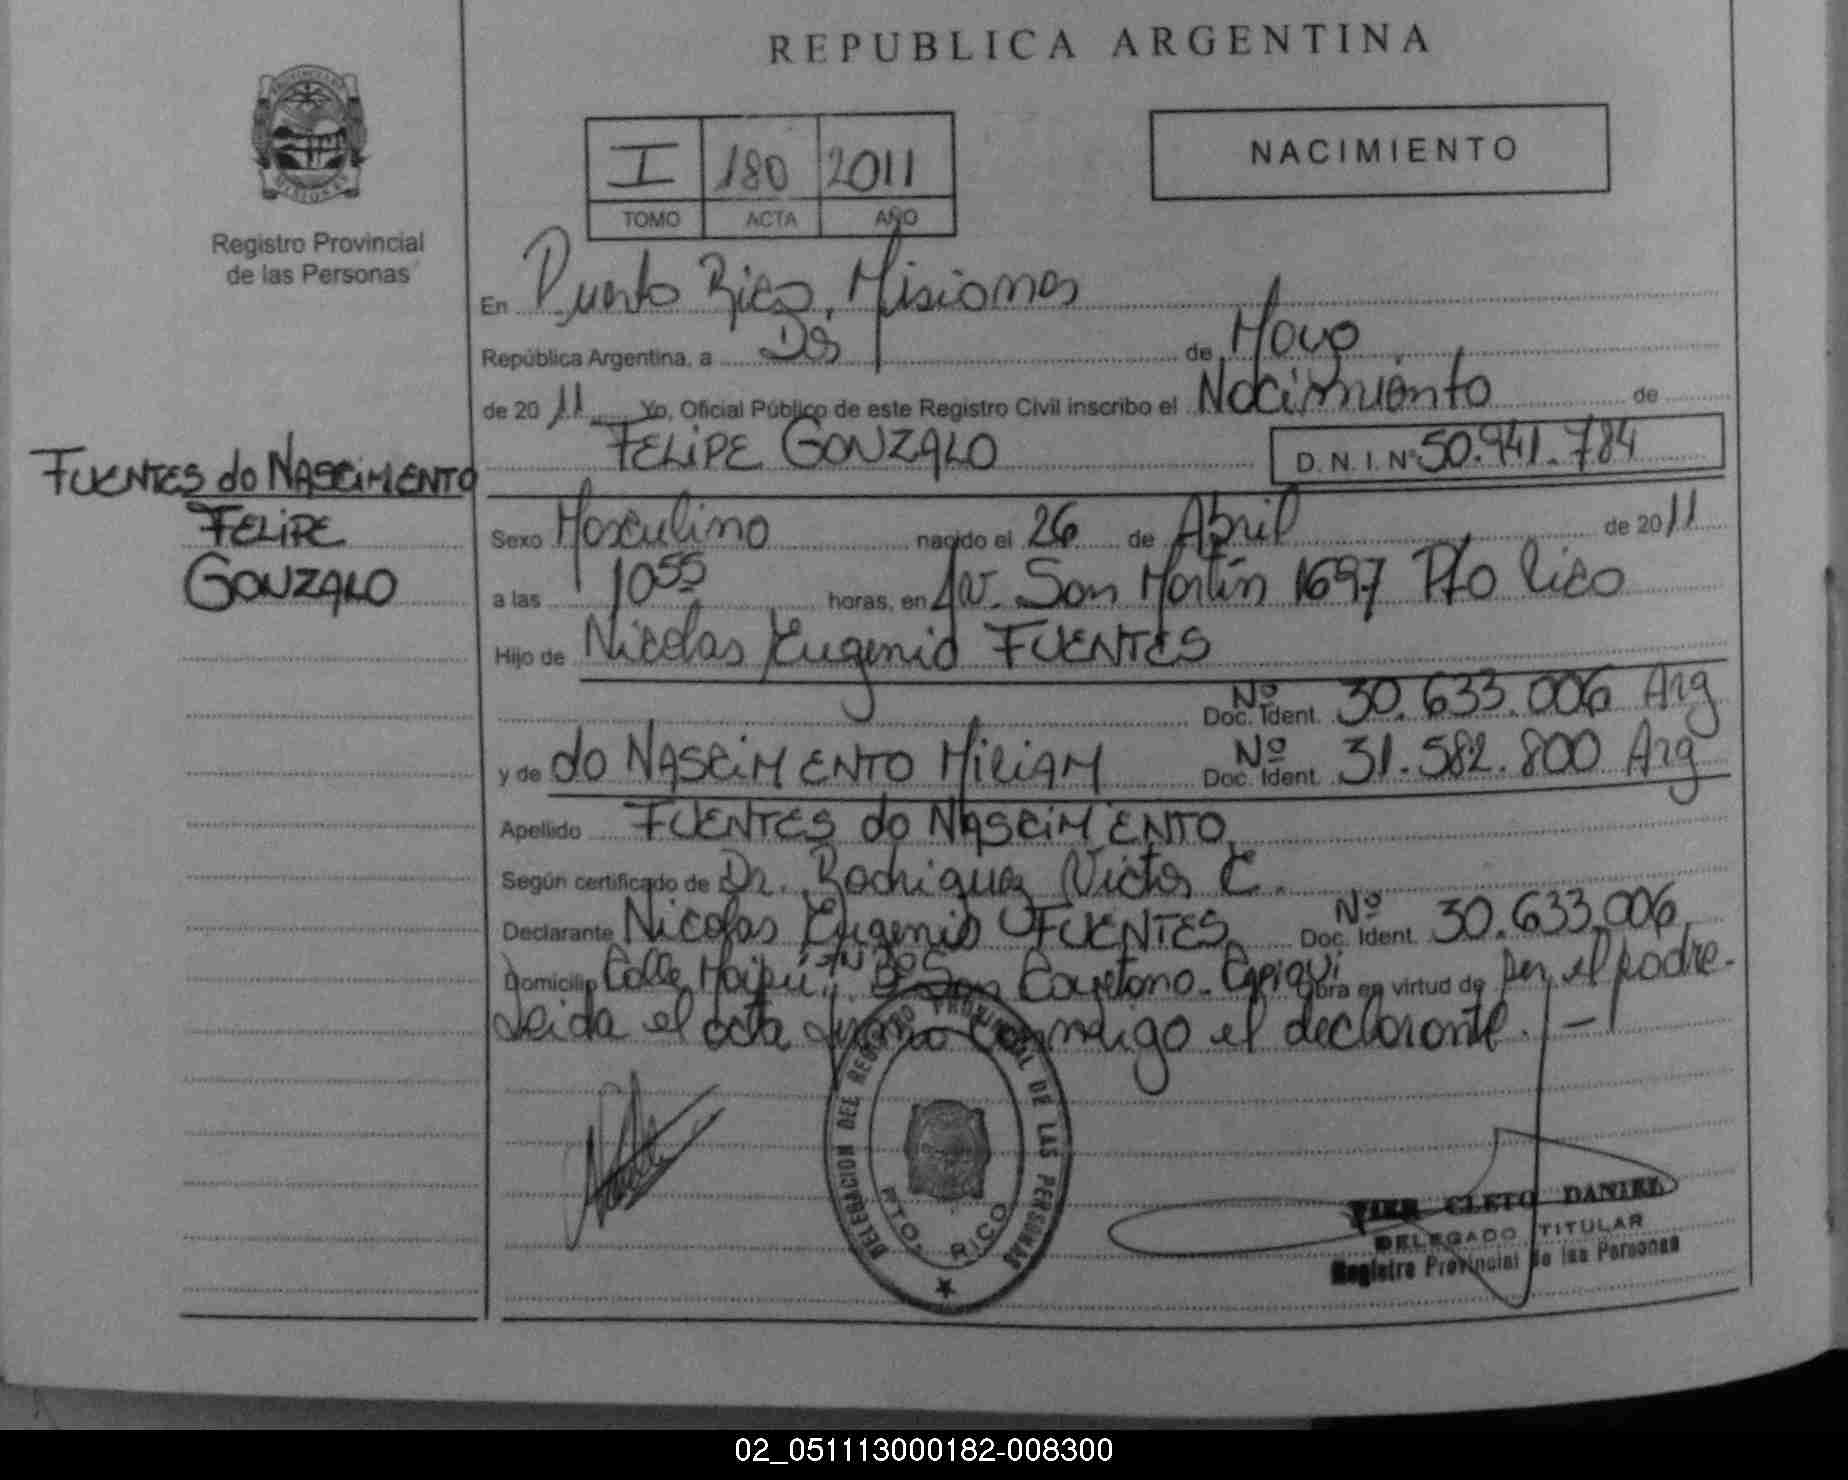 REPUBLICA ARGENTINA
I 180 2011
TOMO ACTA AÑO
NACIMIENTO
Registro Provincial
de las Personas
En Puerto Rico, Misiones
República Argentina, a Dos de Mayo
de 2011 Yo, Oficial Público de este Registro Civil inscribo el Nacimiento de
FELIPE GONZALO D.N.I. Nº 50.941.784
FUENTES do NASCIMENTO
FELIPE
GONZALO
Sexo Masculino nacido el 26 de Abril de 2011
a las 10 55 horas, en Av. San Martín 1697 Pto Rico
Hijo de Nicolas Eugenio FUENTES
Nº Doc. Ident. 30.633.006 Arg
y de do NASCIMENTO MIRIAM Nº Doc. Ident. 31.582.800 Arg
Apellido FUENTES do NASCIMENTO
Según certificado de Dr. Rodriguez Victor E.
Declarante Nicolas Eugenio FUENTES Nº Doc. Ident. 30.633.006
Domicilio Calle Maipú San Cayetano Obra en virtud de ser el padre.
Leida el acta firma conmigo el declarante. —
DELEGACION DEL REGISTRO PROVINCIAL DE LAS PERSONAS
PTO. RICO
CLETO DANIEL
DELEGADO TITULAR
Registro Provincial de las Personas
02_051113000182-008300